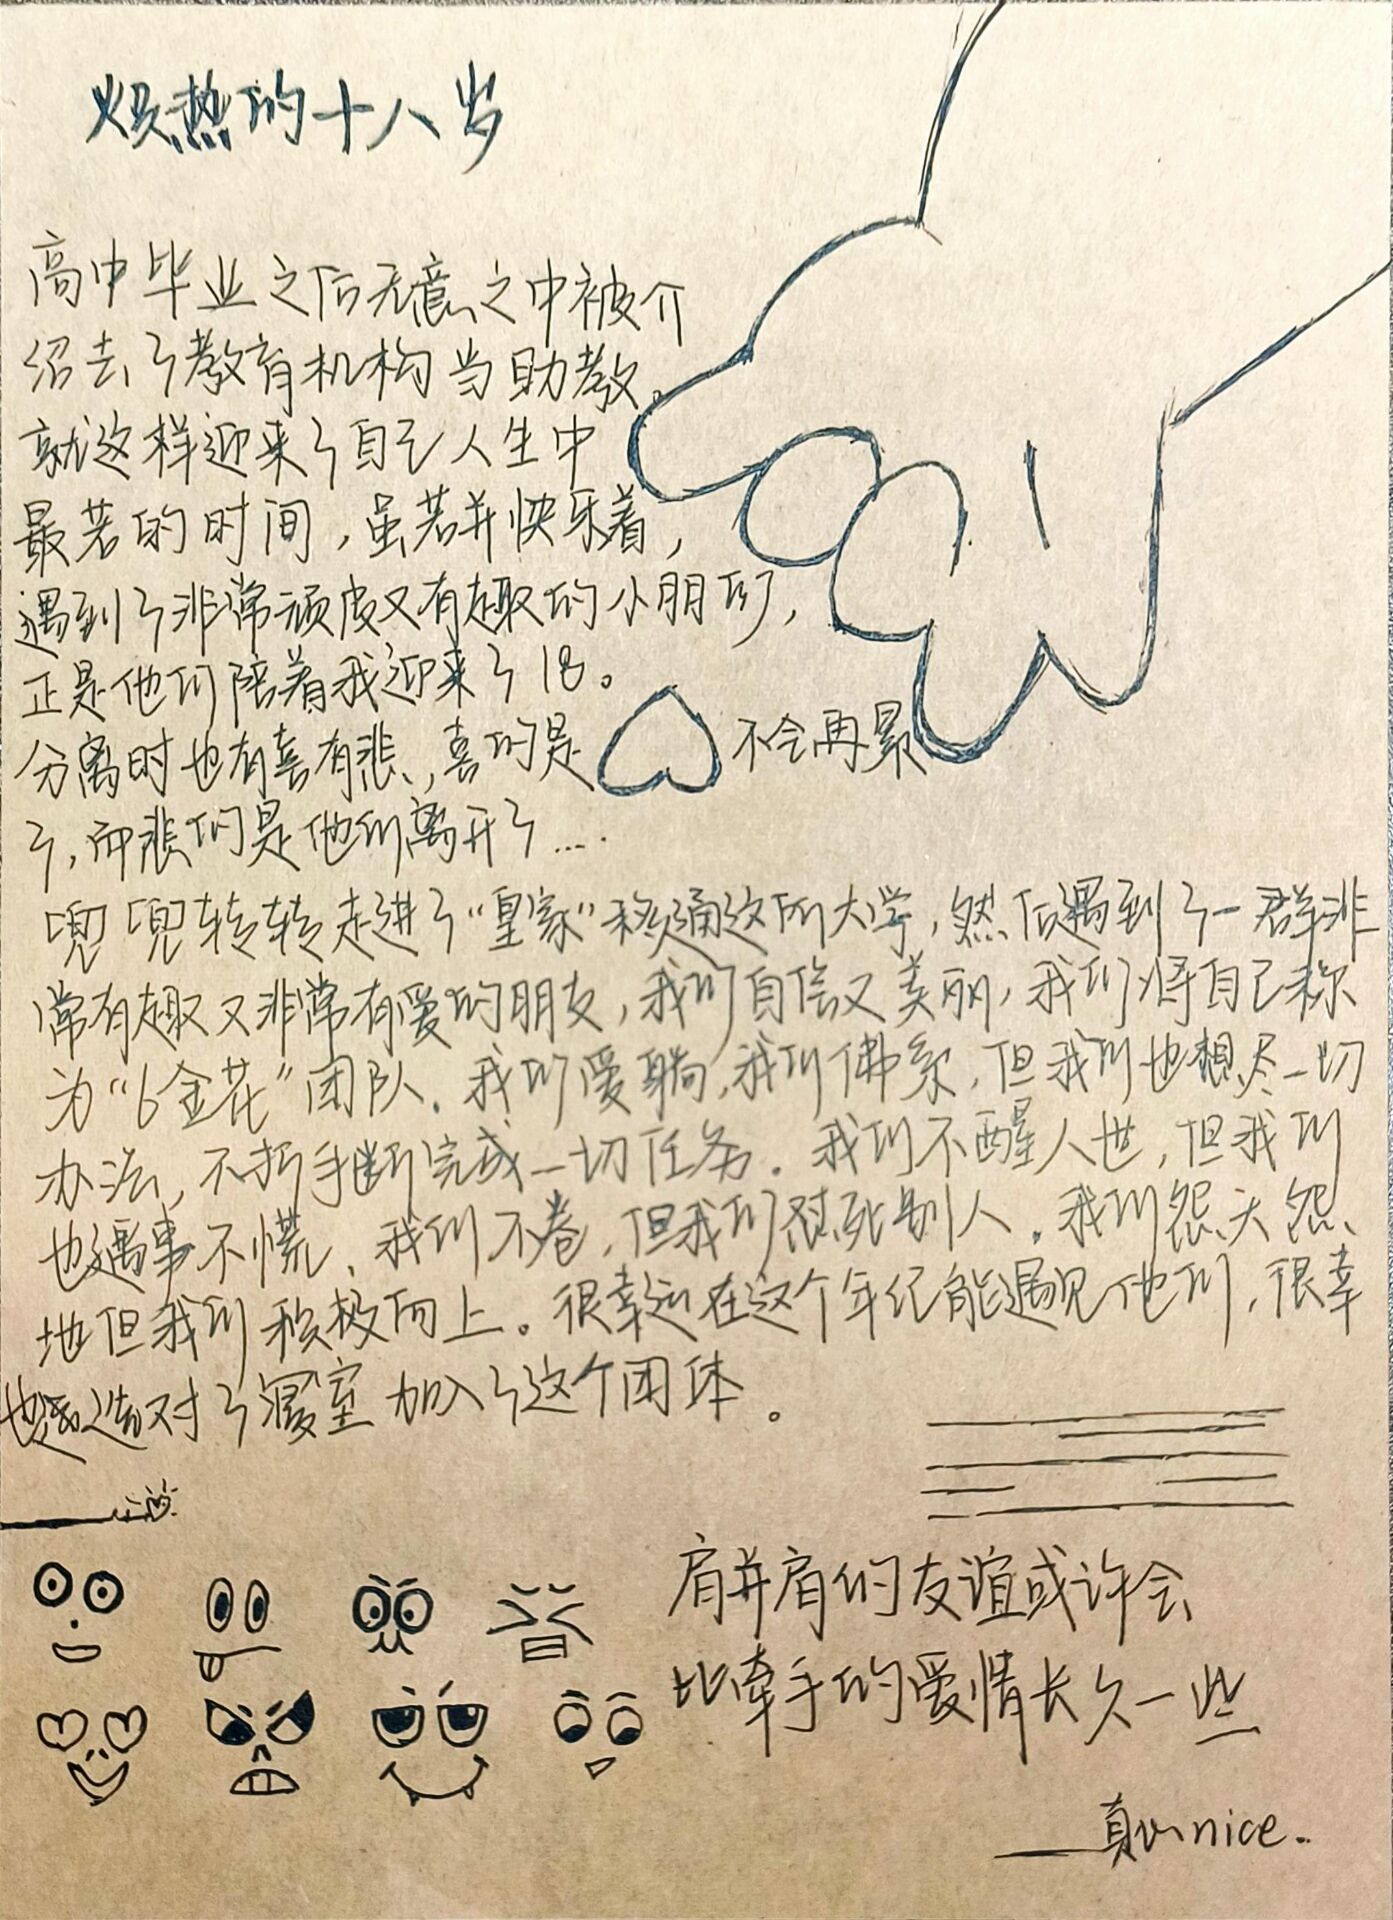 炽热的十八岁
高中毕业之后无意之中被介
绍去了教育机构当助教。
就这样迎来了自己人生中
最苦的时间，虽苦并快乐着，
遇到了非常顽皮又有趣的小朋友，
正是他们陪着我迎来了18。
分离时也有喜有悲，喜的是
不会再累
了，而悲伤的是他们离开了....
兜兜转转走进了“皇家”移通这所大学，然后遇到了一群非
常有趣又非常有爱的朋友，我们自信又美丽，我们将自己称
为“6金花”团队。我们爱躺，我们佛系，但我们也想尽一切
办法，不折手断完成一切任务。我们不醒人世，但我们
也遇事不慌、我们不卷，但我们怼死别人。我们怨天怨
地但我们积极向上。很幸运在这个年纪能遇见他们，很幸
选对了寝室加入了这个团体。
肩并肩的友谊或许会
比牵手的爱情长久一些
——真心nice.